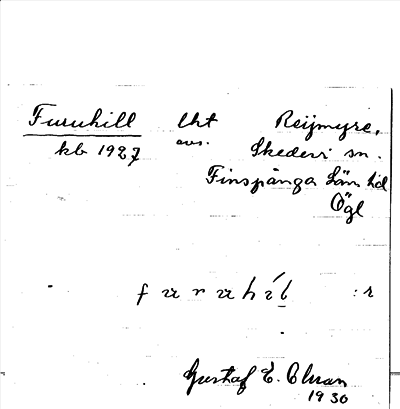 Furuhill lht Reijmyre,
kb 1927 avs. Skedevi sn.
Finspånga läns hd
Ögl
f u r u h i l : r
Gustaf E. Olsson
1930